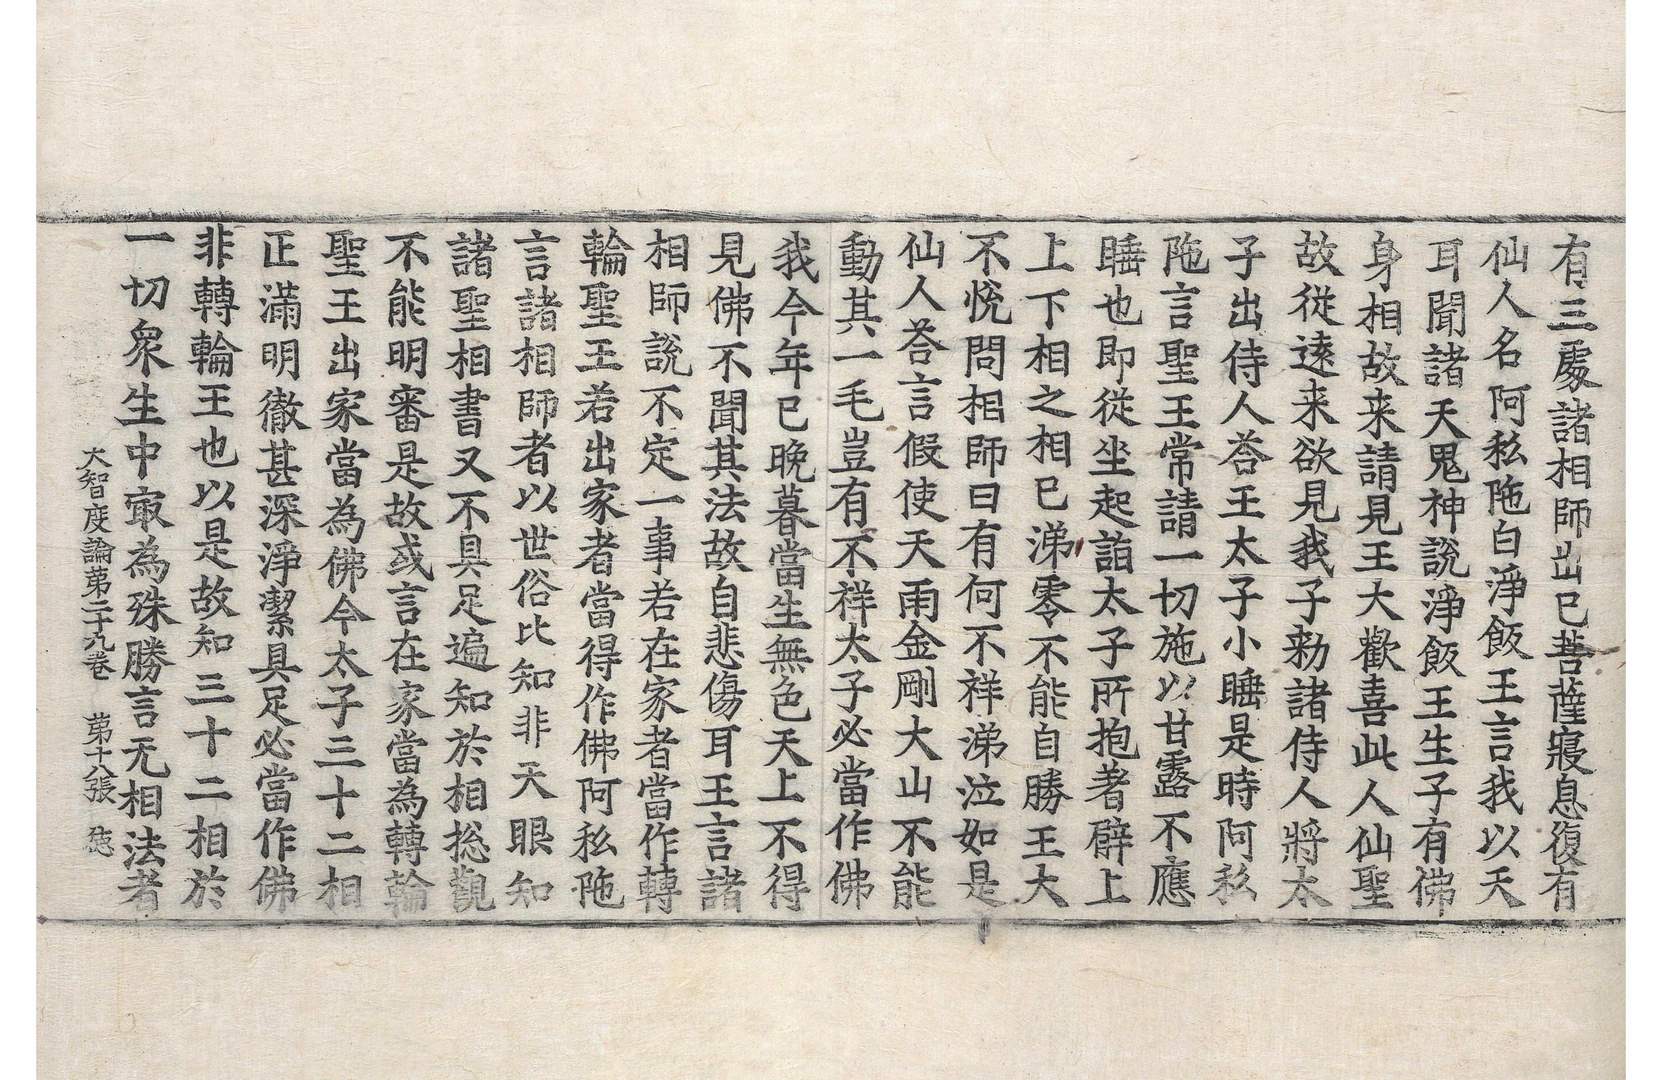 有三處諸相師出已菩薩寢息復有
仙人名阿私陁白淨飯王言我以天
耳聞諸天鬼神說淨飯王生子有佛
身相故来請見王大歡喜此人仙聖
故従遠来欲見我子勑諸侍人將太
子出侍人荅王太子小睡是時阿私
陁言聖王常請一切施以甘露不應
睡也即従坐起詣太子所抱著臂上
上下相之相已涕零不能自勝王大
不悅問相師曰有何不祥涕泣如是
仙人荅言假使天雨金剛大山不能
動其一毛豈有不祥太子必當作佛
我今年已晚暮當生無色天上不得
見佛不聞其法故自悲傷耳王言諸
相師說不定一事若在家者當作轉
輪聖王若出家者當得作佛阿私陁
言諸相師者以世俗比知非天眼知
諸聖相書又不具足遍知於相揔觀
不能明審是故或言在家當為轉輪
聖王出家當為佛今太子三十二相
正滿明徹甚深淨潔具足必當作佛
非轉輪王也以是故知三十二相於
一切衆生中㝡為殊勝言无相法者
大智度論苐二十九卷 苐十八張 㥁